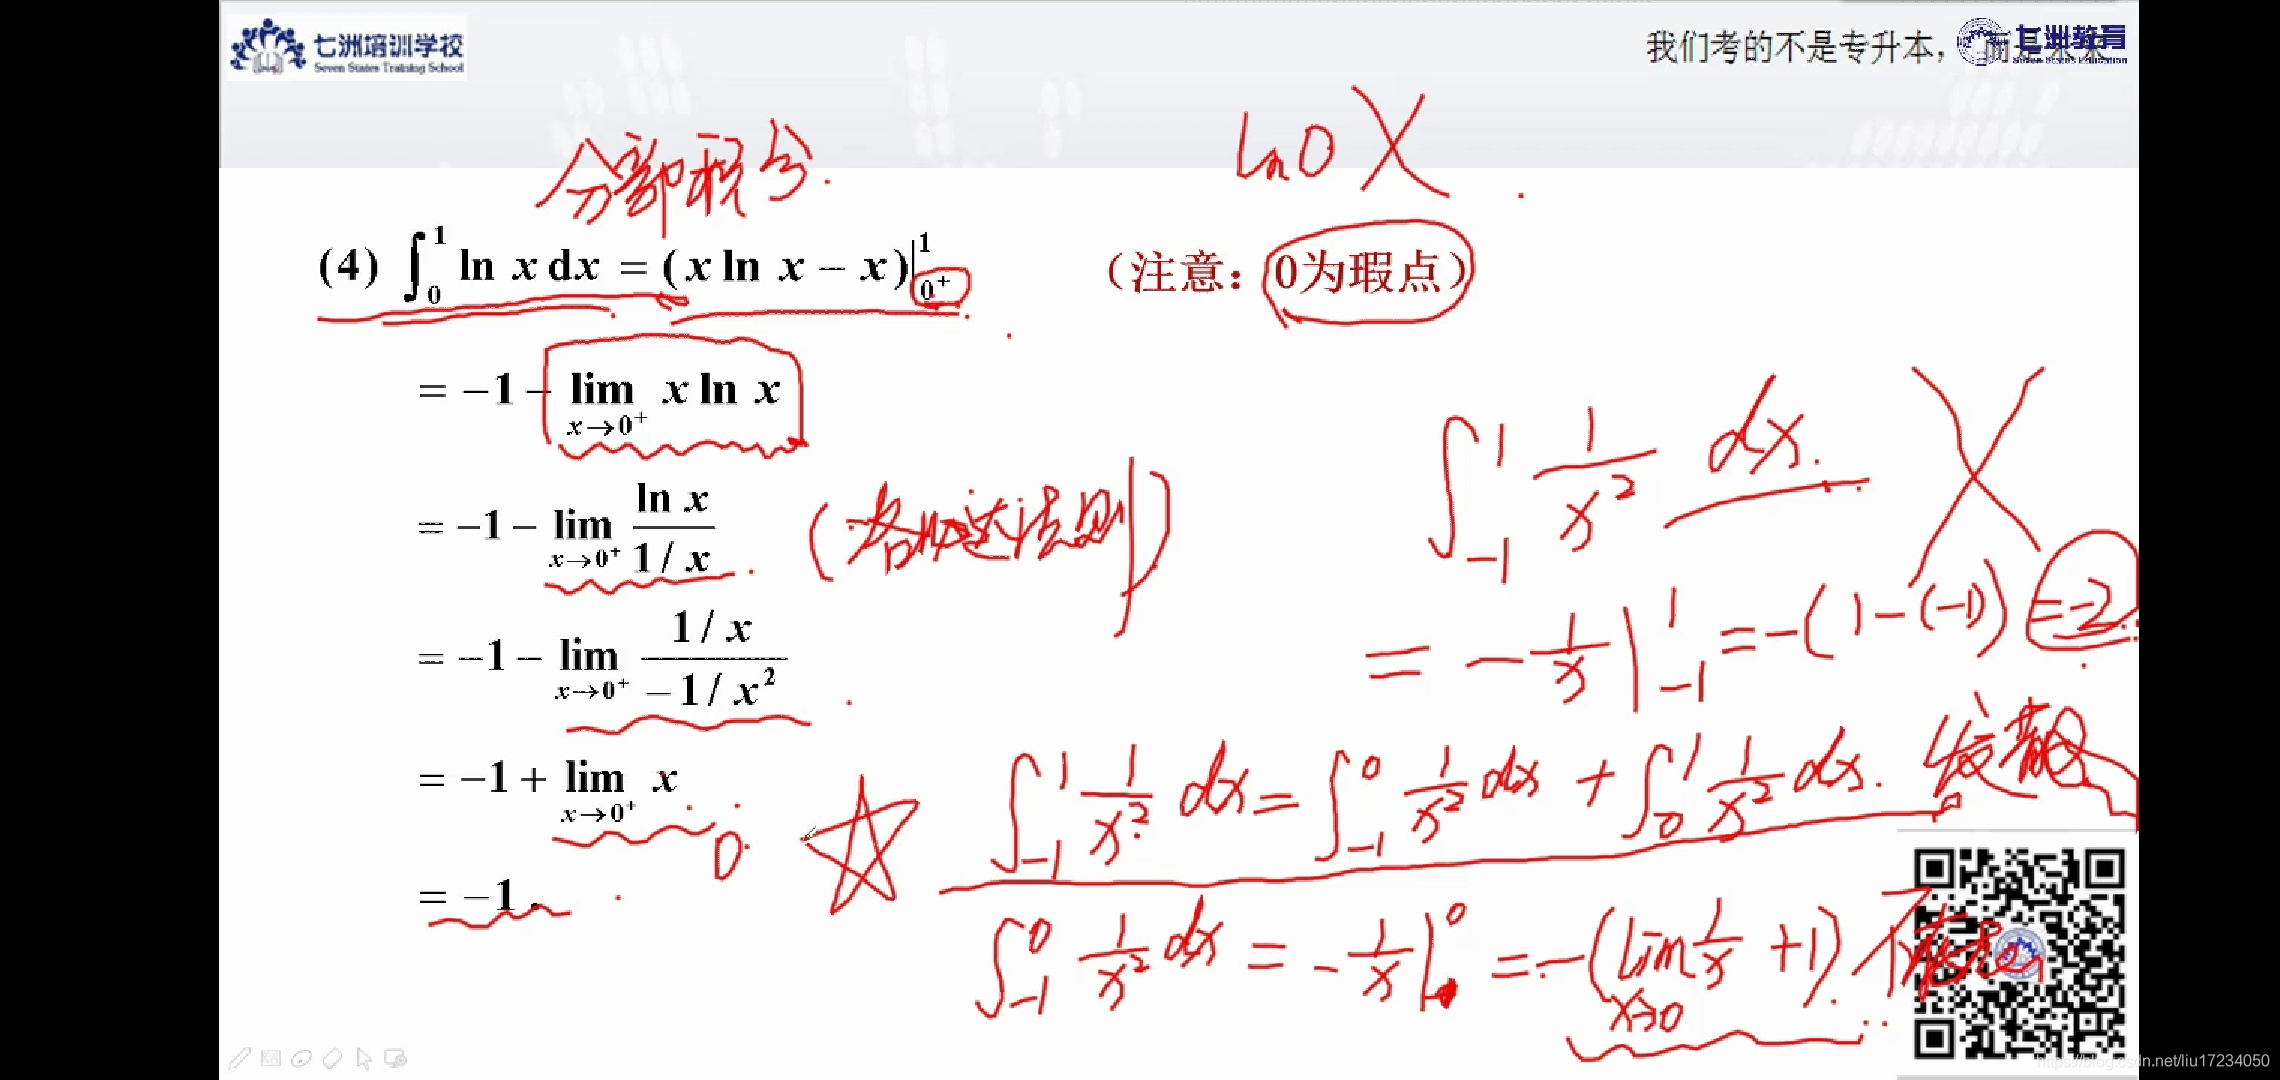 七洲培训学校
Seven States Training School
我们考的不是专升本，而是未来
七洲教育
Seven States Education
分部积分.
ln0 X
(4) ∫₀¹ ln x dx = (x ln x − x)|₀⁺¹ （注意：0为瑕点）
= −1 − lim x→0⁺ x ln x
= −1 − lim x→0⁺ (ln x)/(1/x) (洛必达法则)
= −1 − lim x→0⁺ (1/x)/(−1/x²)
= −1 + lim x→0⁺ x
0
= −1.
∫₋₁¹ 1/x² dx. X
= −1/x |₋₁¹ = −(1−(−1)) = −2
∫₋₁¹ 1/x² dx = ∫₋₁⁰ 1/x² dx + ∫₀¹ 1/x² dx. 发散
∫₋₁⁰ 1/x² dx = −1/x |⁰ = −(lim x→0 1/x +1) 不存在
https://blog.csdn.net/liu17234050